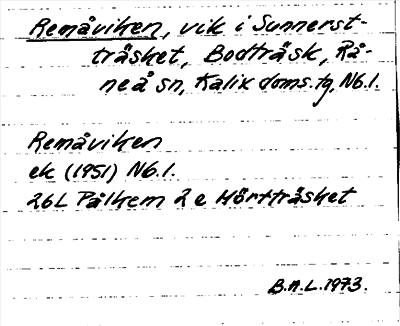 Remåviken, vik i Sunnerst-
träsket, Bodträsk, Rå-
neå sn, Kalix doms.tg, Nb.l.
Remåviken
ek (1951) Nb.l.
26L Pålkem 2 e Mörtträsket
B.A.L. 1973.